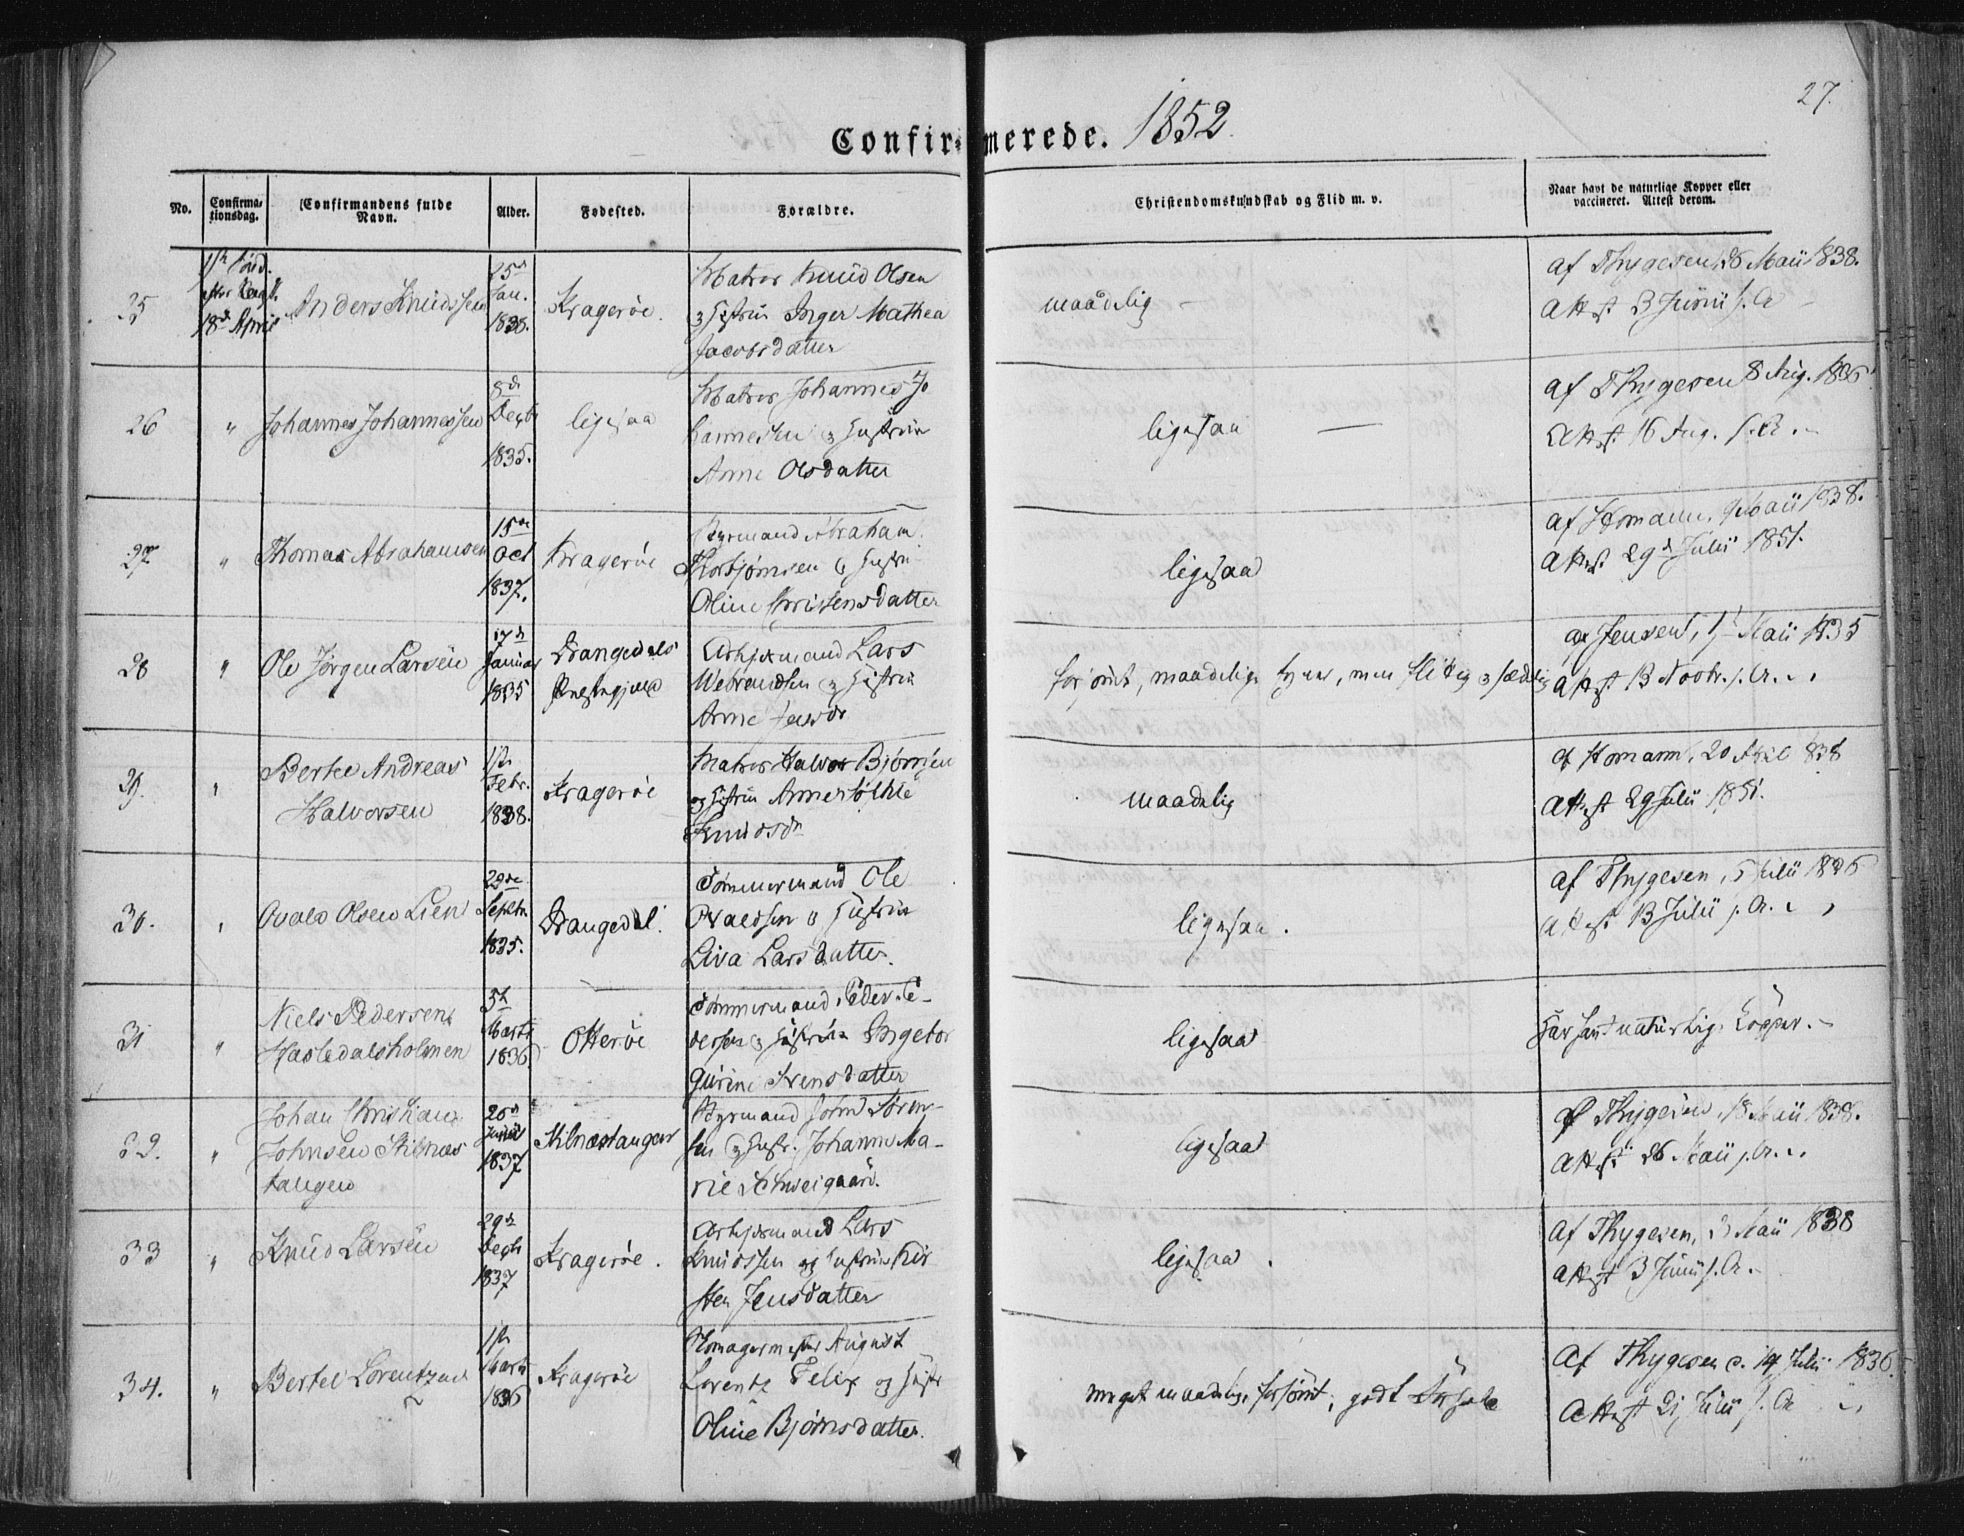 27.
Confirmerede. 1852.
No. Confirmationsdag. Confirmandens fulde Navn. Alder. Fødested. Forældre. Christendomskundskab og Flid m. v. Naar havt de naturlige Kopper eller vaccineret. Attest derom.
25 18d April Anders Knudssen 25d Jan. 1838. Kragerøe. Matros Knud Olsen
og Hustrue Inger Mathea
Jacobsdatter
maadelig - af Thygesen, 26 Maii 1838.
Attest 3 Junii s. A -
26 " Johannes Johannessen 8d Decbr 1835. ligesaa Matros Johannes Jo
hannessen og Hustrue
Anne Olsdatter
ligesaa — af Thygesen 8 Aug. 1836
Attest 16 Aug. s. A. -
27 " Thomas Abrahamsen 15de Oct 1837. Kragerøe Styrmand Abraham
Thorbjørnsen og Hustru
Oline Christensdatter
ligesaa af Homann, 9 Maii 1838.
Attest 29d Julii 1851.
28 " Ole Jørgen Larsen 17d Januar 1835 Drangedals Præstegjeld Arbeidsmand Lars
og Hustrue
Anne
forsømt, maadelig, men flittig og sædelig
af Jensen, Maii 1835
Attest 13 Novbr. s. A.
29. " Bertel Andreas
Halvorsen 1ste Febr. 1838. Kragerøe Matros Halvor Bjørnsen
og Hustrue Anne
Knudsdr
maadelig af Homann, 20 April 1838
Attest 29 Julii 1851.
30. " Ovald Olsen Lien 29de Septbr. 1835. Drangedal. Tømmermand Ole
Ovaldsen og Hustrue
Liva Larsdatter.
ligesaa. af Thygesen, 5 Julii 1836
Attest 13 Julii s. A.
31 " Niels Pedersen
Hasledalsholmen 5te Marts 1836 Otterøe Tømmermand Peder Pe-
dersen og Hustrue Ingebor
Gurine Svensdatter
ligesaa Har havt naturlige Kopper. -
32. " Johan Christian
Johnsen Stilnæs
tangen 20d 1837 Stilnæstangen Styrmand John Søren-
sen og Hustr. Johanne Ma-
rie Schweigaard.
ligesaa af Thygesen, 18 Maii 1838.
Attest 26 Maii s. A.
33 " Knud Larsen 29d Decbr 1837 Kragerøe. Arbeidsmand Lars
Knudssen og Hustrue Kir
sten Jensdatter
ligesaa. af Thygesen, 3 Maii 1838
Attest 3 Junii s. A. -
34. " Bertel Lorentzen 1ste Marts 1836 Kragerøe August
Lorentz Felix og Hustr
Oline Bjørnsdatter.
meget maadelig, forsømt, godt
Af Thygesen d. 14 Julii 1836.
Attest 21 Julii s. A